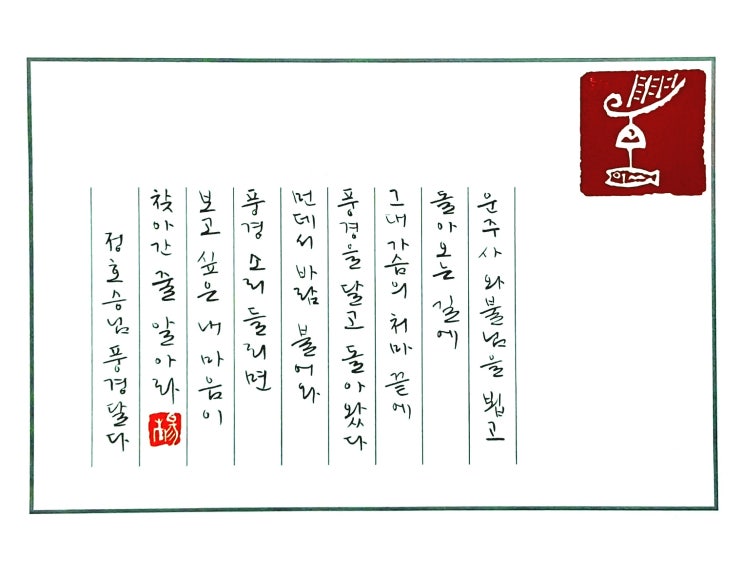 운주사 와불님을 뵙고
돌아오는 길에
그대 가슴의 처마 끝에
풍경을 달고 돌아왔다
먼데서 바람 불어와
풍경 소리 들리면
보고 싶은 내 마음이
찾아간 줄 알아라
정호승님 풍경달다